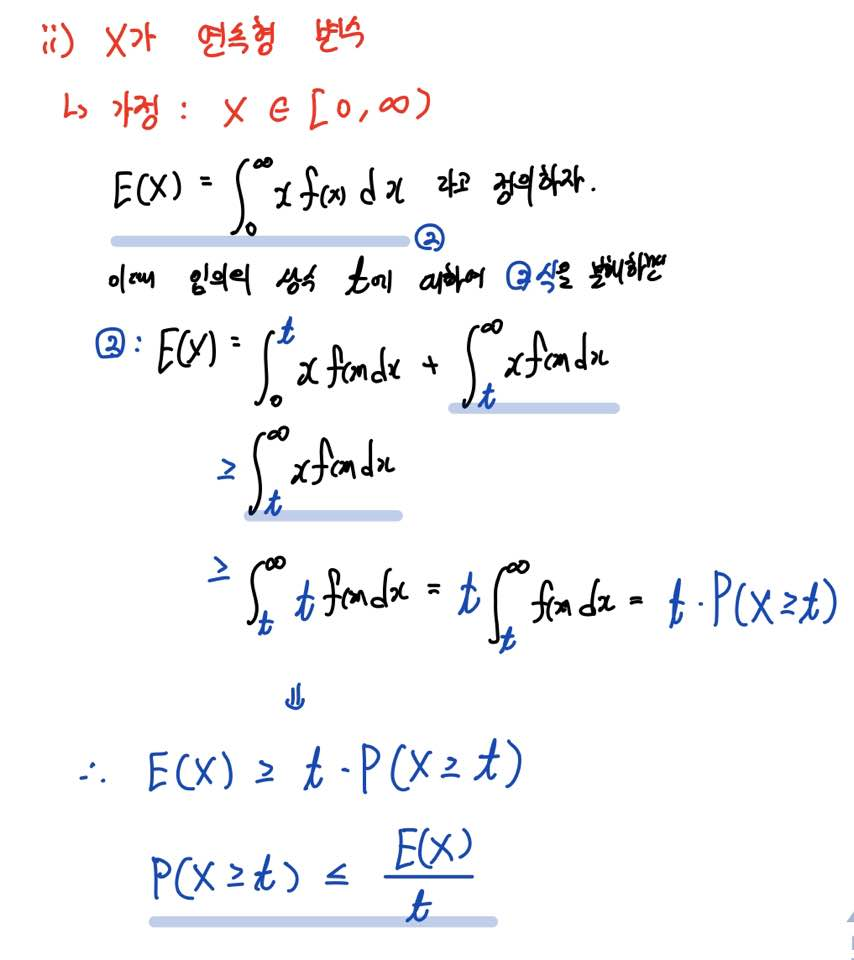 ii) X가 연속형 변수
↳ 가정 : X ∈ [0, ∞)
E(X) = ∫₀^∞ x f(x) dx 라고 정의하자. ②
이때 임의의 상수 t에 대하여 ②식을 분해하면
② : E(X) = ∫₀^t x f(x) dx + ∫ₜ^∞ x f(x) dx
≥ ∫ₜ^∞ x f(x) dx
≥ ∫ₜ^∞ t f(x) dx = t ∫ₜ^∞ f(x) dx = t · P(X ≥ t)
⇓
∴ E(X) ≥ t · P(X ≥ t)
P(X ≥ t) ≤ E(X)/t